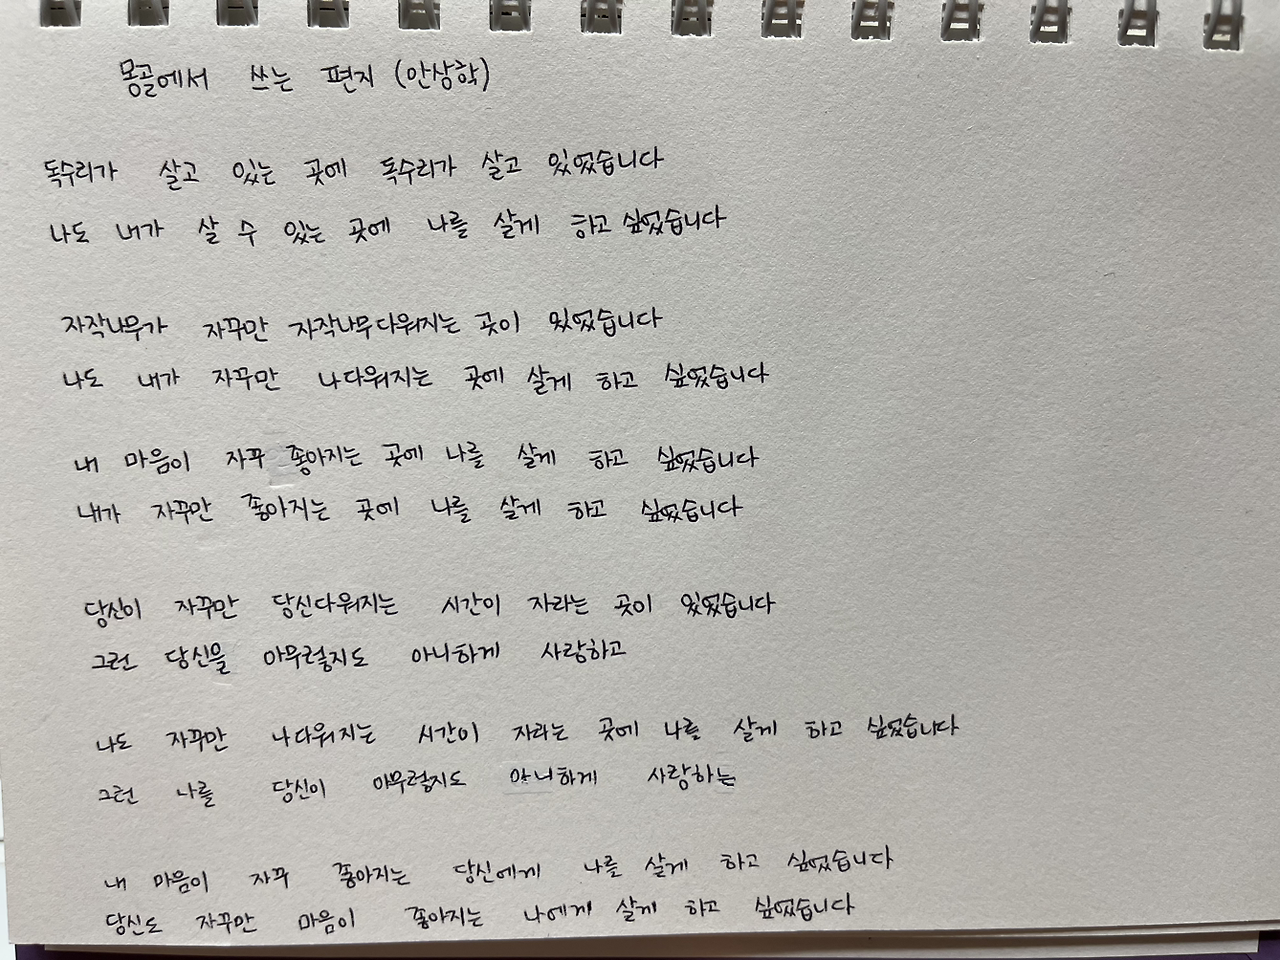 몽골에서 쓰는 편지 (안상학)
독수리가 살고 있는 곳에 독수리가 살고 있었습니다
나도 내가 살 수 있는 곳에 나를 살게 하고 싶었습니다
자작나무가 자꾸만 자작나무다워지는 곳이 있었습니다
나도 내가 자꾸만 나다워지는 곳에 살게 하고 싶었습니다
내 마음이 자꾸 좋아지는 곳에 나를 살게 하고 싶었습니다
내가 자꾸만 좋아지는 곳에 나를 살게 하고 싶었습니다
당신이 자꾸만 당신다워지는 시간이 자라는 곳이 있었습니다
그런 당신을 아무렇지도 아니하게 사랑하고
나도 자꾸만 나다워지는 시간이 자라는 곳에 나를 살게 하고 싶었습니다
그런 나를 당신이 아무렇지도 아니하게 사랑하는
내 마음이 자꾸 좋아지는 당신에게 나를 살게 하고 싶었습니다
당신도 자꾸만 마음이 좋아지는 나에게 살게 하고 싶었습니다